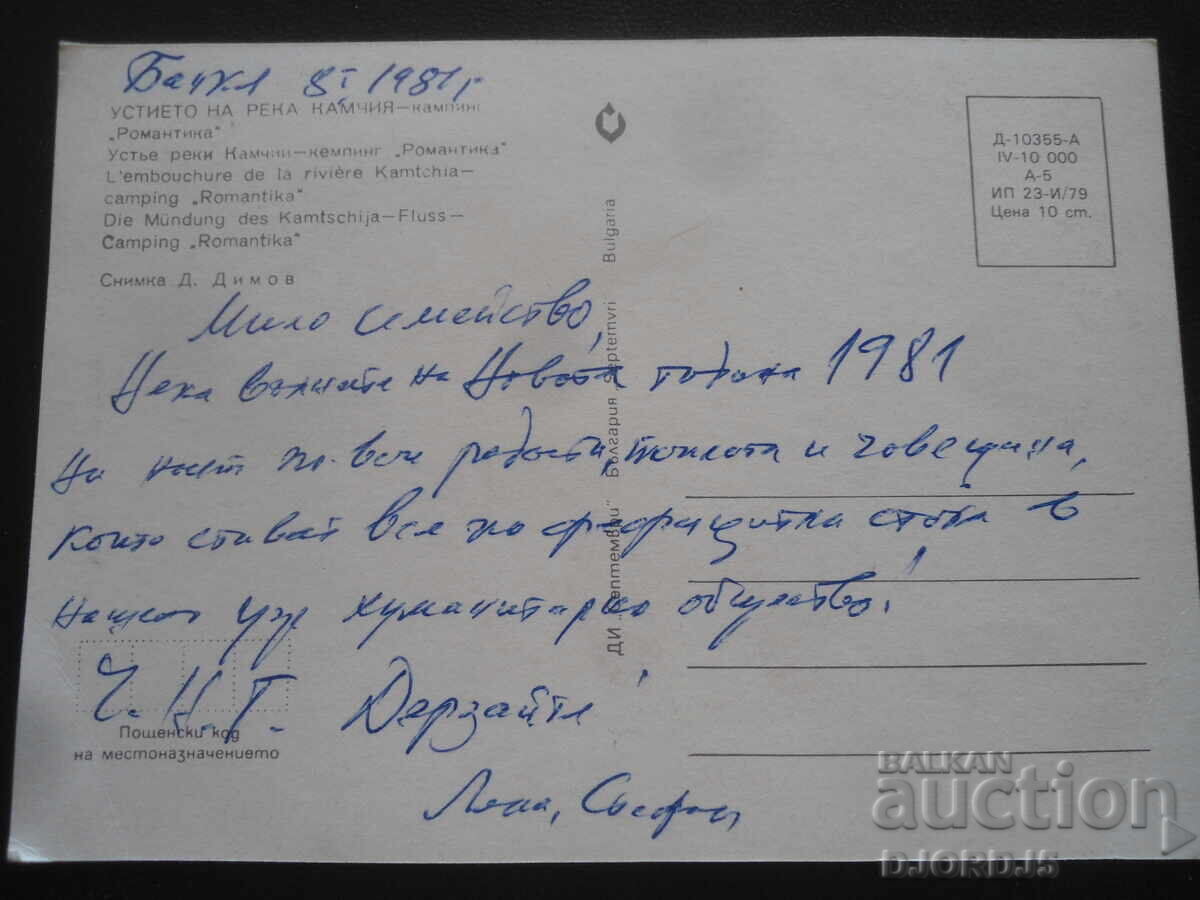 8 I 1981 г
УСТИЕТО НА РЕКА КАМЧИЯ—кампинг
„Романтика"
Устье реки Камчии—кемпинг „Романтика"
L'embouchure de la rivière Kamtchia—
camping „Romantika"
Die Mündung des Kamtschija—Fluss—
Camping „Romantika"
Снимка Д. Димов
Д-10355-А
IV-10 000
А-5
ИП 23-И/79
Цена 10 ст.
ДИ „Септември" България Septemvri Bulgaria
Мило семейство,
Нека вълните на Новата година 1981
Ви носят по-вече радости, топлота и човещина,
които стават все по дефицитна стока в
нашето уж хуманитарно общество!
Ч.Н.Г. Дерзайте!
Пощенски код
на местоназначението
Лена,
BALKAN
auction
DJORDJ5